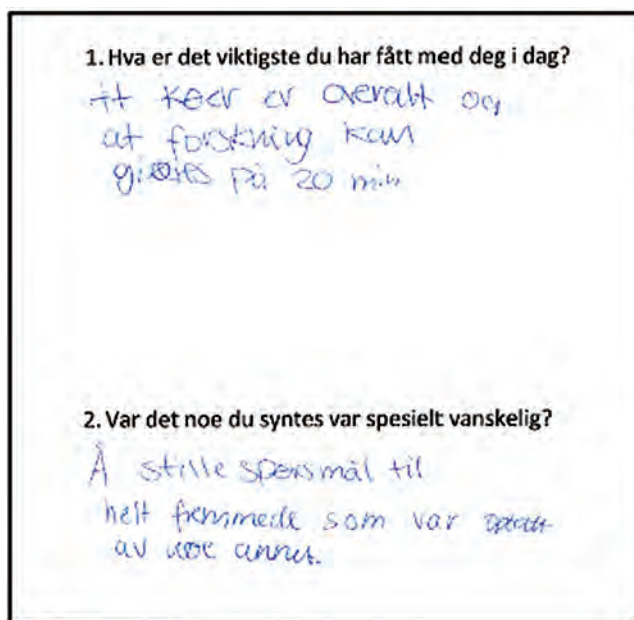 1. Hva er det viktigste du har fått med deg i dag?
er overalt og
at forskning kan
gjøres på 20 min
2. Var det noe du syntes var spesielt vanskelig?
Å stille spørsmål til
helt fremmede som var
av noe annet.